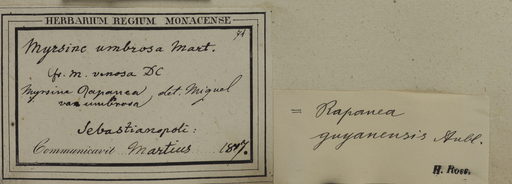 HERBARIUM REGIUM MONACENSE
Myrsine umbrosa Mart.
fr. M. venosa DC
Myrsine Rapanea det. Miquel
var umbrosa
Sebastianopoli:
Communicavit Martius
= Rapanea
guyanensis Aubl.
H. Ross.